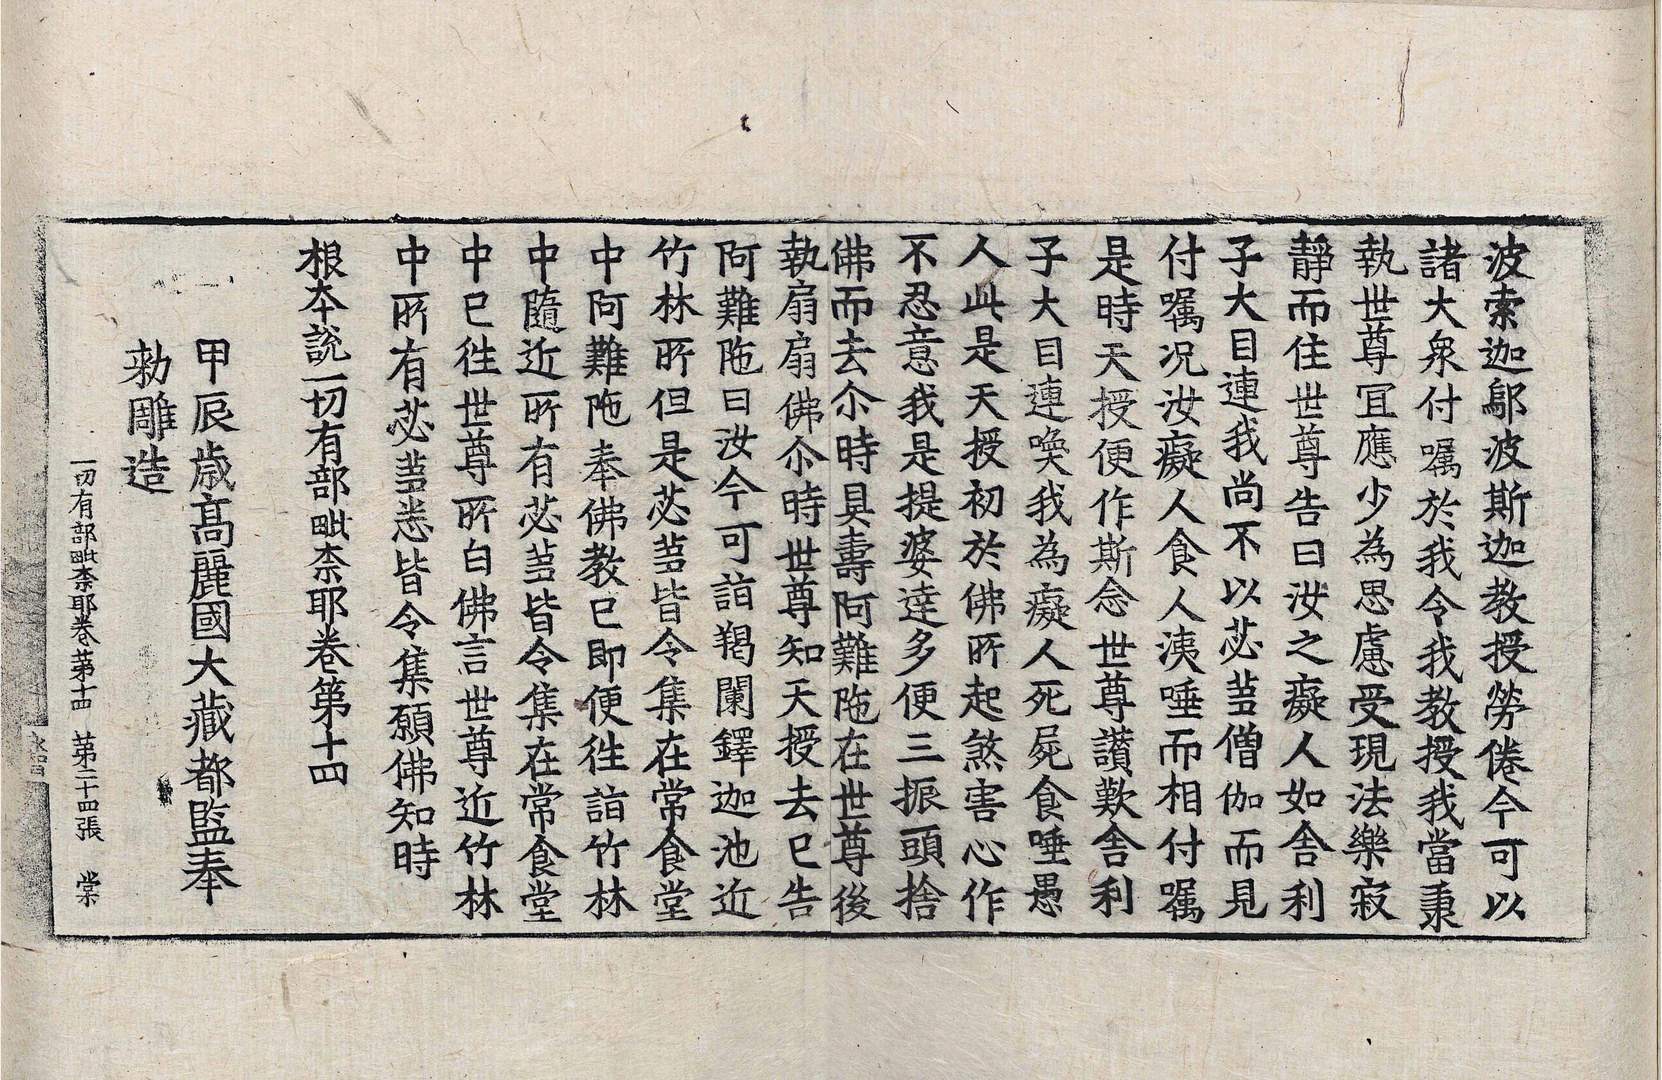 波索迦鄔波斯迦教授勞倦今可以
諸大衆付囑於我令我教授我當秉
執世尊冝應少為思慮受現法樂寂
靜而住世尊告曰汝之癡人如舍利
子大目連我尚不以苾芻僧伽而見
付囑况汝癡人食人洟唾而相付囑
是時天授便作斯念世尊讃歎舍利
子大目連喚我為癡人死屍食唾愚
人此是天授初於佛所起煞害心作
不忍意我是提婆達多便三振頭捨
佛而去尒時具壽阿難陁在世尊後
執扇扇佛尒時世尊知天授去已告
阿難陁曰汝今可詣羯闌鐸迦池近
竹林所但是苾芻皆令集在常食堂
中阿難陁奉佛教已即便徃詣竹林
中隨近所有苾芻皆令集在常食堂
中已徃世尊所白佛言世尊近竹林
中所有苾芻悉皆令集願佛知時
根本說一切有部毗柰耶卷第十四
甲辰歳高麗國大藏都監奉
勑雕造
一切有部毗柰耶卷第十四 第二十四張 棠